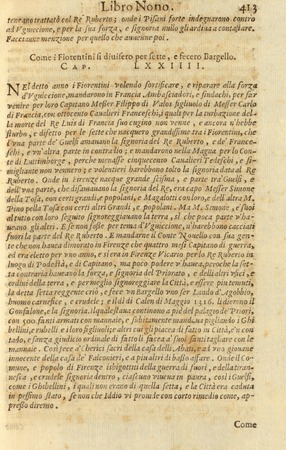 Libro Nono. 413
tenano trattato col Re Ruberto; onde i Pisani forte indegnarono contro
ad Vguccione, e per la sua forza, e signoria nullo gli ardiua a contastare.
Facciamo menzione per quello che auuenne poi.
Come i Fiorentini si diuisero per sette, e fecero Bargello.
CAP. LXXIIII.
NEl detto anno i Fiorentini volendo fortificare, e riparare alla forza
d'Vguccione, mandarono in Francia Ambasciadori, e sindachi, per far
venire per loro Capitano Messer Filippo di Valos figliuolo di Messer Carlo
di Francia, con ottocento Caualieri Franceschi, i quali per la
la morte del Re Luis di Francia suo cugino non venne, ancora
sturbo, e difetto per le sette che nacquero grandissime tra i Fiorentini, che
l'vna parte de' Guelfi amauano la signoria del Re Ruberto, e de' Franc-
eschi, e vn'altra parte in contrallo; e mandarono nella Magna per lo Conte
di Luzimborgo, perche menasse cinquecento Caualieri Tedeschi, e si-
migliante non venne; e volentieri harebbono tolto la signoria data al Re
Ruberto. Onde in Firenze nacque grande sisma, e parte tra Guelfi, e
dell'vna parte, che disamauano la signoria del Re, era capo Messer Simone
della Tosa, con certi grandi, e popolani, e Magalotti con loro, e dell'altra M.
Pino pella Tosa con certi altri Grandi, e popolani. Ma M. Simone, e suoi
al tutto con loro seguito signoreggiauano la terra, si che poca parte v'ha-
ueano gli altri. E se non fosse per tema d'Vguccione, si harebbono cacciati
fuori la parte del Re Ruberto. E mandarne il Conte Nouello con sua gen-
te che non hauea dimorato in Firenze che quattro mesi Capitano di guerra,
ed era eletto per vno anno, e si era in Firenze Vicario per lo Re Ruberto in
luogo di Podestà, e di Capitano, ma poco podere v'hauea, perche la set-
ta contraria haueano la forza, e signoria del Priorato, e delli altri vfici, e
ordini della terra, e per meglio signoreggiare la Città, e esser piu temuti,
la detta setta reggente criò, e fece vn Bargello vno ser Lando d'Agobbio,
huomo carnefice, e crudele; e il dì di Calen di Maggio 1316. li dierono il
Confalone, e la signoria. Il quale stana continouo a piè del palagio de' Priori,
con 500 fanti armati con mannaie, e subitamente mandaua pigliando i Ghi-
bellini, e rubelli e i loro figliuoli, e altri cui gli piacea di fatto in Città, e'n con-
tado, e senza giudicio ordinale di fatto li facea a' suoi fanti tagliare con le
mannaie. Così fece a' cherici sacri della casa delli Abati, e a vno giouane
innocente della casa de' Falconieri, e a piu altri di basso affare. Onde il Co-
mune, e popolo di Firenze isbigottiti della guerra di fuori, e della tiran-
nesca, e crudele signoria dentro, ciascuno viuea in paura, così i Guelfi,
come i Ghibellini, i quali non erano di quella setta, e la Città era caduta
in pessimo stato, se non che Iddio vi prouide con corto rimedio come, ap-
presso diremo.
Come